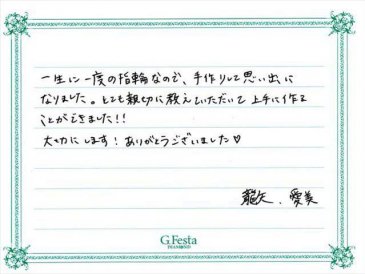 一生に一度の指輪なので、手作りして思い出に
なりました。とても親切に教えていただいて上手に作る
ことができました!!
大切にします！ありがとうございました♡
龍矢、愛美
G.Festa
DIAMOND